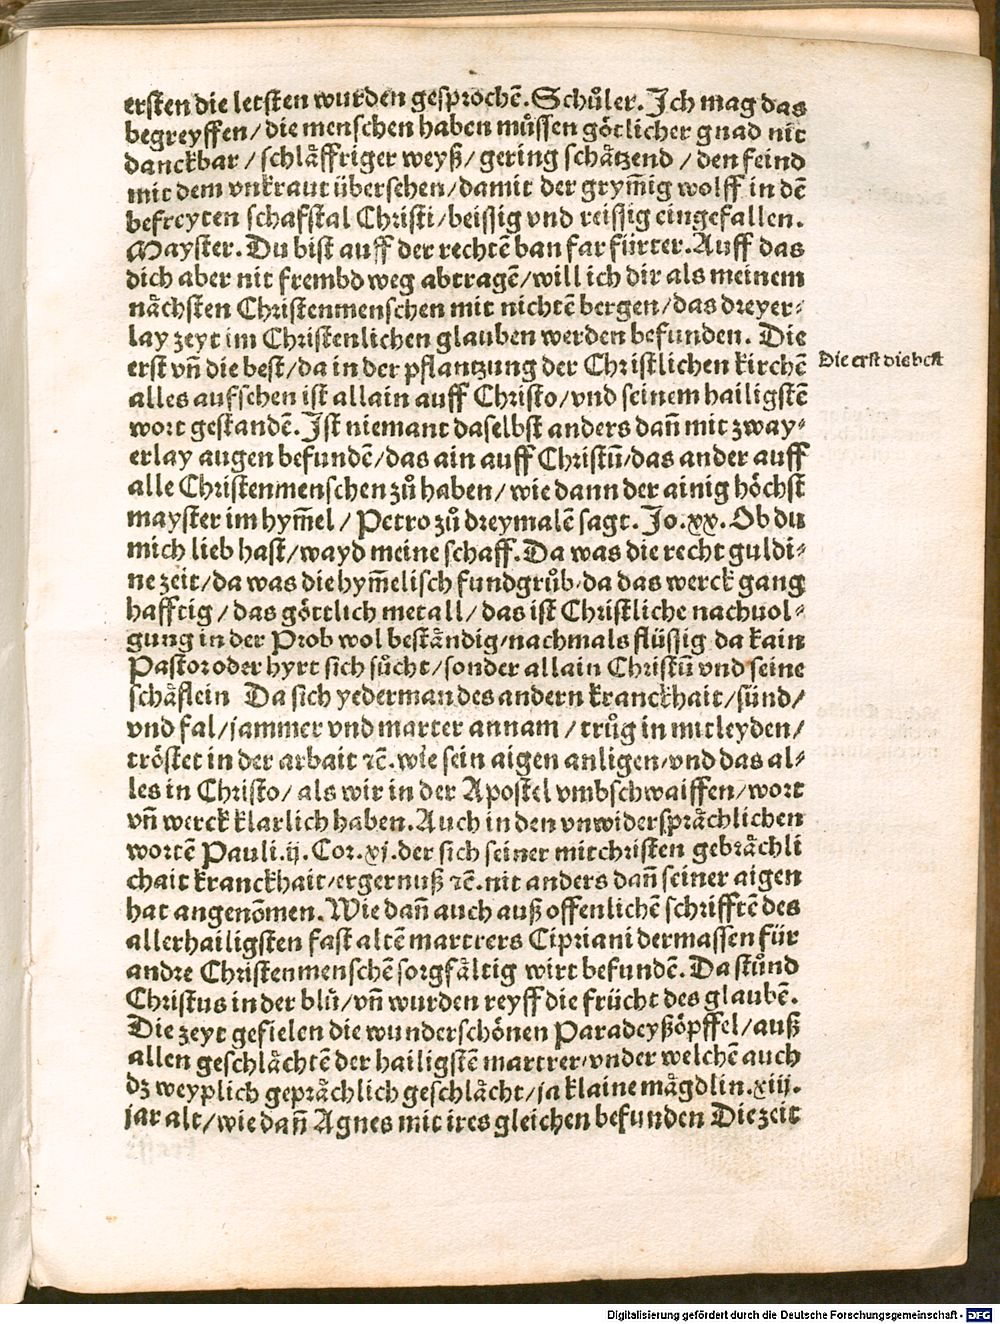 ersten die letsten wurden gesprochē. Schůler. Ich mag das
begreyffen / die menschen haben můssen götlicher gnad nit
danckbar / schlåffriger weyß / gering schåtzend / den feind
mit dem vnkraut übersehen / damit der grym̄ig wolff in dē
befreyten schafstal Christi / beissig vnd reissig eingefallen.
Mayster. Du bist auff der rechtē ban far fürter. Auff das
dich aber nit frembd weg abtragē / will ich dir als meinem
nåchsten Christenmenschen mit nichtē bergen / das dreyer⸗
lay zeyt im Christenlichen glauben werden befunden. Die
erst vn̄ die best / da in der pflantzung der Christlichen kirchē
Die erst die best
alles aufsehen ist allain auff Christo / vnd seinem hailigstē
wort gestandē. Ist niemant daselbst anders dan̄ mit zway⸗
erlay augen befundē / das ain auff Christū / das ander auff
alle Christenmenschen zů haben / wie dann der ainig höchst
mayster im hym̄el / Petro zů dreymalē sagt. Jo. xx. Ob du
mich lieb hast / wayd meine schaff. Da was die recht guldi⸗
ne zeit / da was die hym̄elisch fundgrůb. da das werck gang
hafftig / das göttlich metall / das ist Christliche nachuol⸗
gung in der Prob wol beståndig / nachmals flüssig da kain
Pastor oder hyrt sich sůcht / sonder allain Christū vnd seine
schåflein Da sich yederman des andern kranckhait / sünd /
vnd fal / jammer vnd marter annam / trůg in mitleyden /
tröstet in der arbait ꝛc̄. wie sein aigen anligen / vnd das al⸗
les in Christo / als wir in der Apostel vmbschwaiffen / wort
vn̄ werck klarlich haben. Auch in den vnwiderspråchlichen
wortē Pauli. ij. Cor. xj. der sich seiner mitchristen gebråchli
chait kranckhait / ergernuß ꝛc̄. nit anders dan̄ seiner aigen
hat angenōmen. Wie dan̄ auch auß offenlichē schrifftē des
allerhailigsten fast altē martrers Cipriani dermassen für
andre Christenmenschē sorgfåltig wirt befundē. Da stůnd
Christus in der blů / vn̄ wurden reyff die frücht des glaubē.
Die zeyt gefielen die wunderschönen Paradeyßöpffel / auß
allen geschlåchtē der hailigstē martrer / vnder welchē auch
dz weyplich gepråchlich geschlåcht / ja klaine mågdlin. xiij.
jar alt / wie dan̄ Agnes mit ires gleichen befunden Die zeit
Digitalisierung gefördert durch die Deutsche Forschungsgemeinschaft - DFG